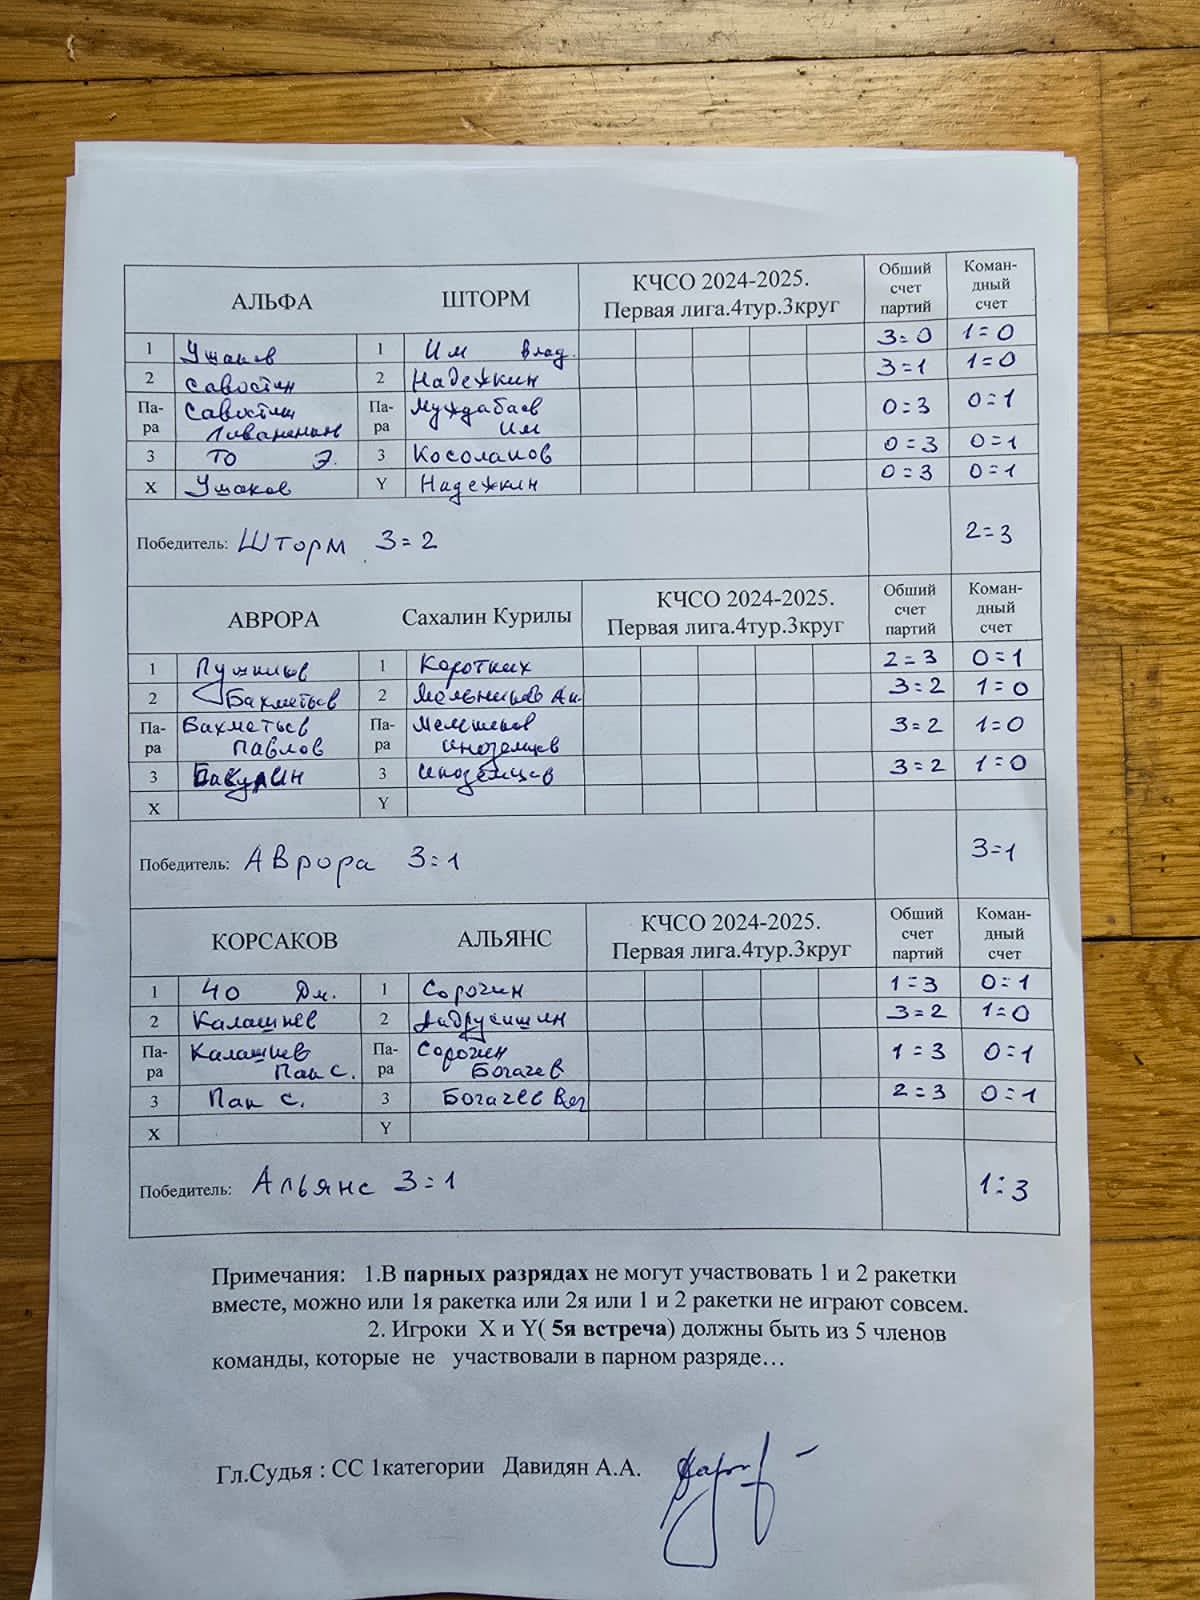 АЛЬФА ШТОРМ КЧСО 2024-2025. Первая лига.4тур.3круг Общий счет партий Коман-дный счет
1 Ушаков 1 Им Влад. 3=0 1=0
2 Савостин 2 Надежкин 3=1 1=0
Па-ра Савостин Па-ра Муждабаев 0=3 0=1
Им
3 ТО Э. 3 Косолапов 0=3 0=1
X Ушаков Y Надежкин 0=3 0=1
Победитель: Шторм 3=2 2=3
АВРОРА Сахалин Курилы КЧСО 2024-2025. Первая лига.4тур.3круг Общий счет партий Коман-дный счет
1 1 Коротких 2=3 0=1
2 Бахметьев 2 3=2 1=0
Па-ра Бахметьев Па-ра 3=2 1=0
Павлов Иноземцев
3 Бакулин 3 Иноземцев 3=2 1=0
X Y
Победитель: Аврора 3=1 3=1
КОРСАКОВ АЛЬЯНС КЧСО 2024-2025. Первая лига.4тур.3круг Общий счет партий Коман-дный счет
1 ЧО Дм. 1 Сорочин 1=3 0=1
2 Калашнев 2 3=2 1=0
Па-ра Калашнев Па-ра Сорочин 1=3 0=1
Пак С. Богачев
3 Пак С. 3 Богачев 2=3 0=1
X Y
Победитель: Альянс 3=1 1:3
Примечания: 1.В парных разрядах не могут участвовать 1 и 2 ракетки
вместе, можно или 1я ракетка или 2я или 1 и 2 ракетки не играют совсем.
2. Игроки X и Y( 5я встреча) должны быть из 5 членов
команды, которые не участвовали в парном разряде…
Гл.Судья : СС 1категории Давидян А.А.